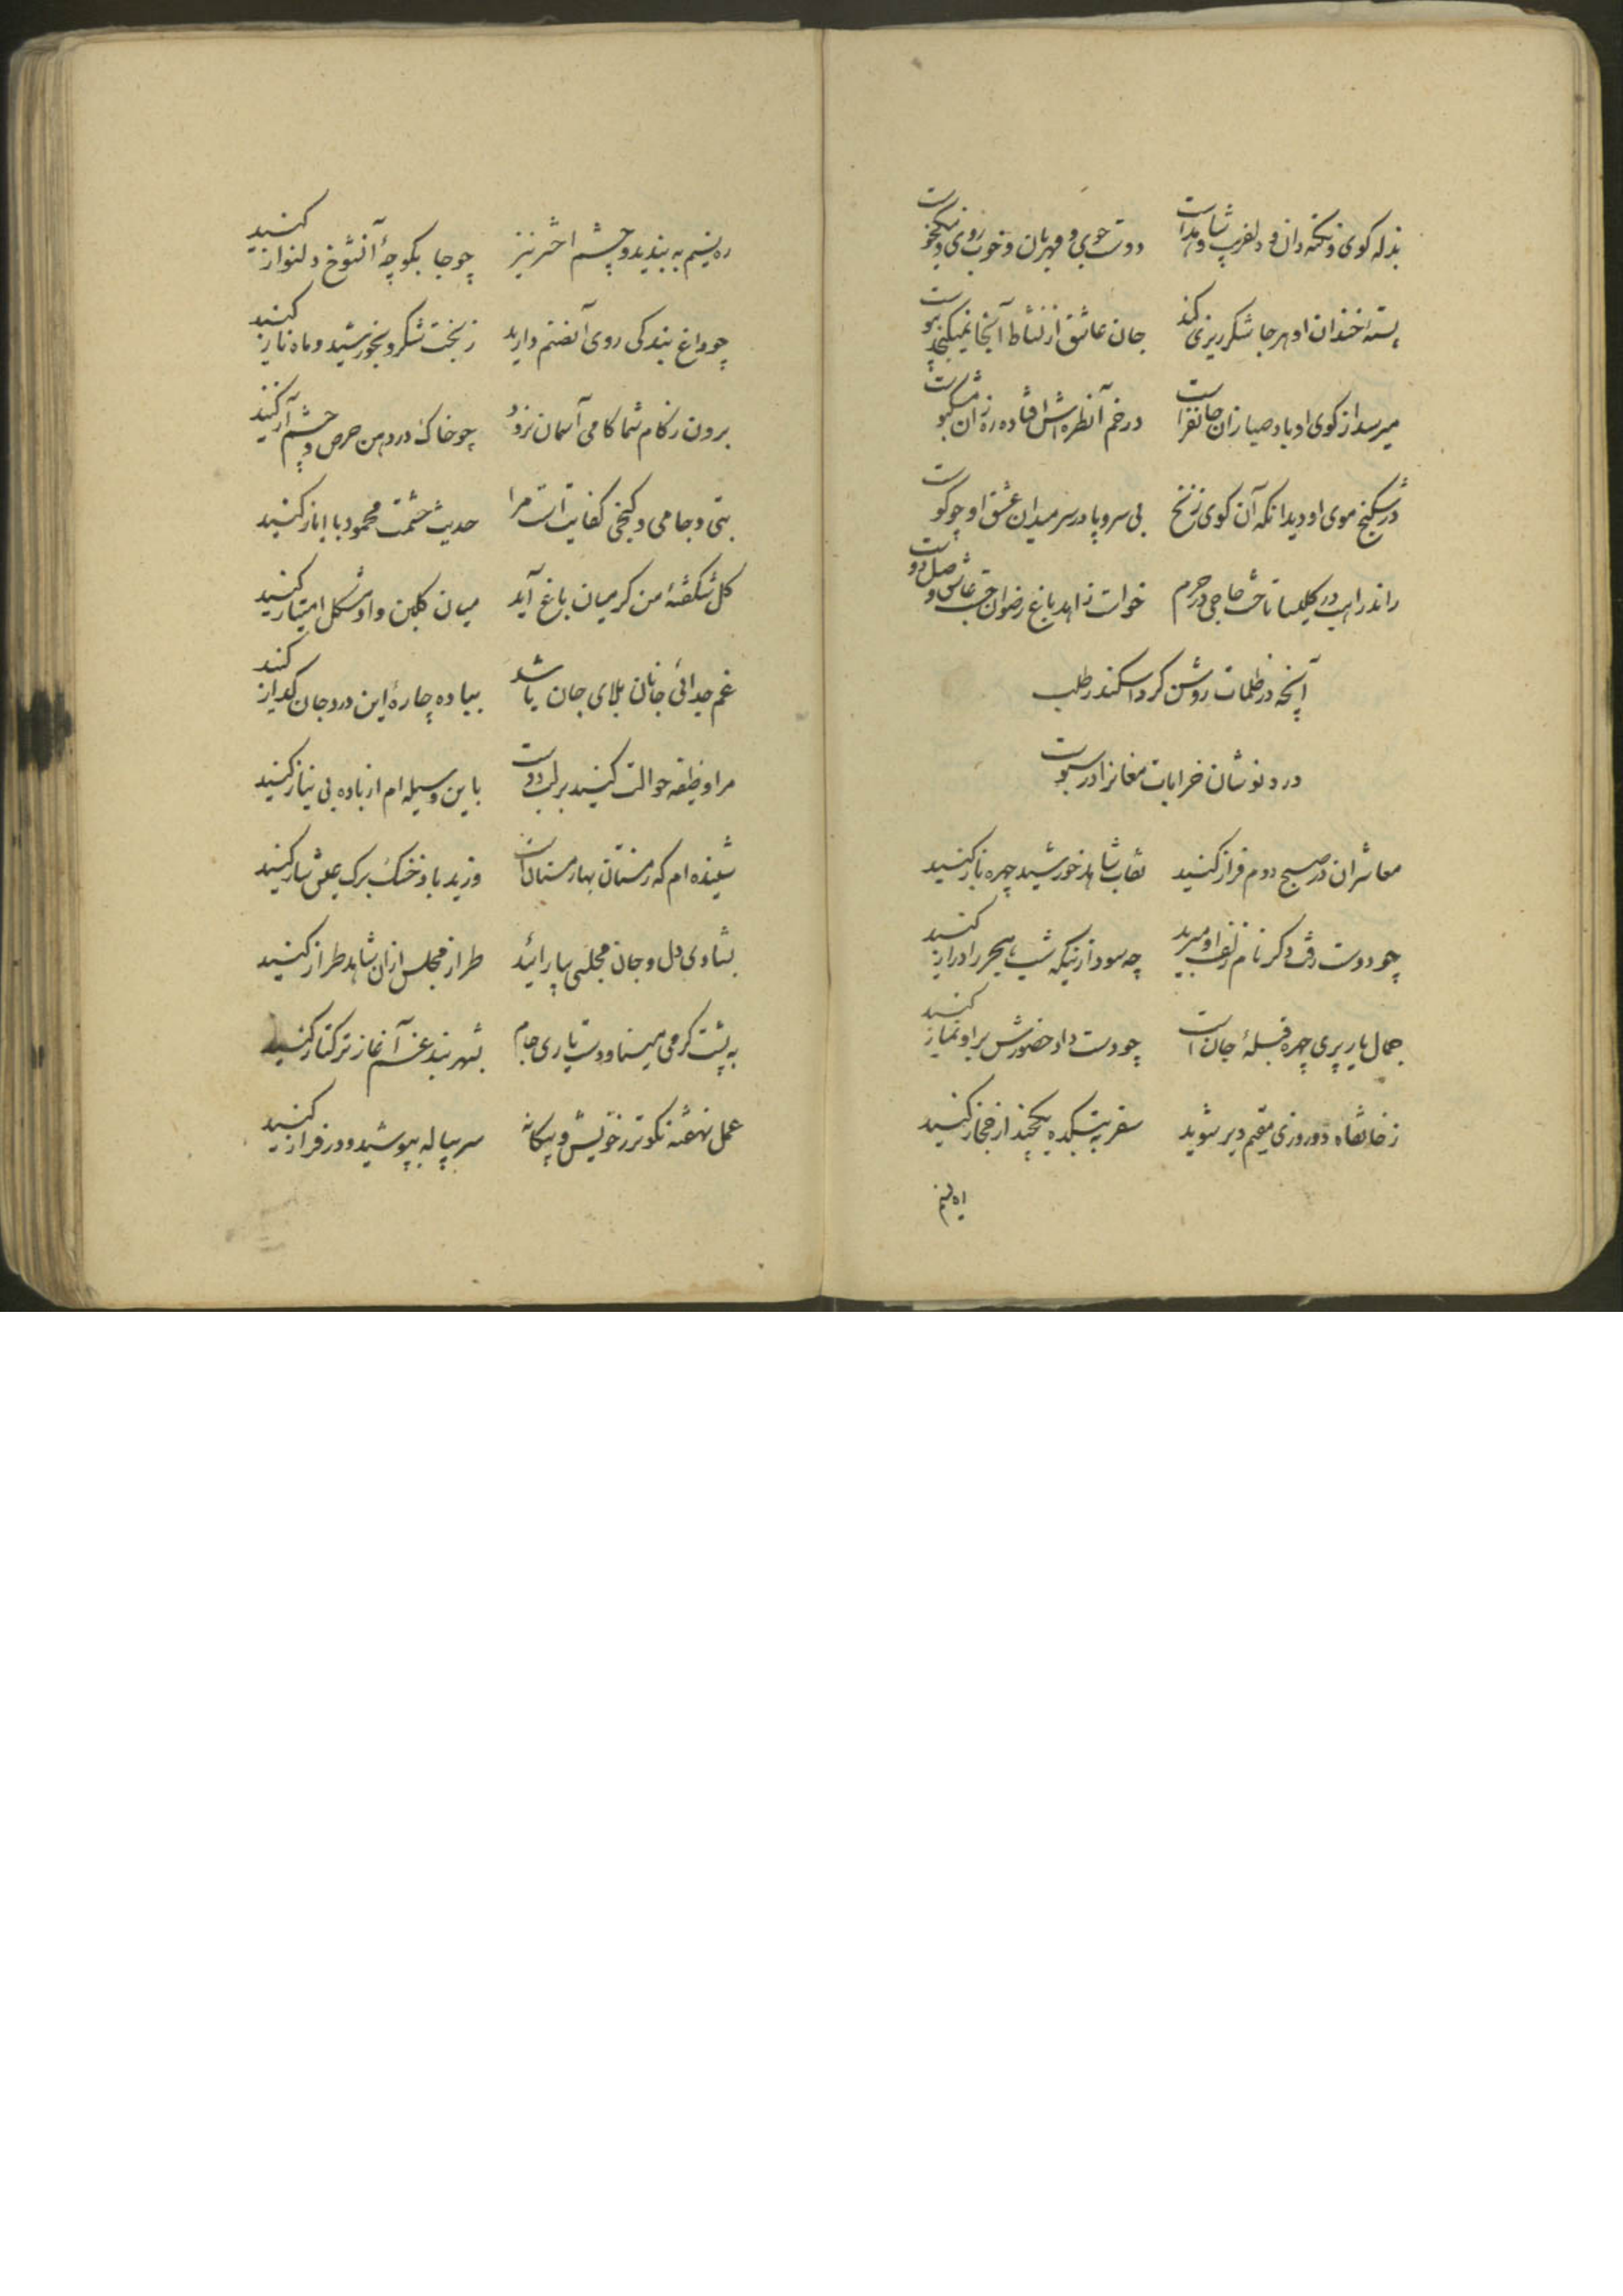 بذله کوی و نکته دان و دلفریب و شاهد است دوست جوی و مهربان و خوب روی و نیکخوست
پسته خندان او هرجا شکر ریزی کند جان عاشق از نشاط آنجا نمیکنجد
میرسد از کوی او باد صبا زان جانفزا است در خم آن طره اش افتاده زان مشکبوست
در شکنج موی او دید آنکه آن کوی زنخ بی سر و پا در سر میدان عشق او چو کوست
راند راهب در کلیسا تاخت حاجی در حرم خواست زاهد باغ رضوان جست عاشق وصل دوست
آنچه در ظلمات روشن کرد اسکندر طلب
درد نوشان خرابات مغانرا در سبوست
معاشران در صبح دوم فراز کنید نقاب شاهد خورشید چهره باز کنید
چو دوست رفت دکر نام زلف او مبرید چه سود ازنیکه شب هجر را دراز کنید
جمال یار پری چهره قبلهٔ جان است چو دست داد حضورش بر او نماز کنید
ز خانقاه دو روزی مقیم دیر شوید سفر به بتکده یکچند از حجاز کنید
ره نسیم
ره نسیم به بندید و چشم اختر نیز چو جا بکوچهٔ آنشوخ دلنواز کنید
چو داغ بندکی روی آنصنم دارید ز بخت شکر و بخورشید و ماه ناز کنید
برون ز کام شما کامی آسمان نرود چو خاک در دهن حرص و چشم آز کنید
بتی و جامی و کنجی کفایت است مرا حدیث حشمت محمود با ایاز کنید
کل شکفتهٔ من کر میان باغ آید میان کلبن و او مشکل امتیاز کنید
غم جدائی جانان بلای جان باشد بباده چاره این درد جان کداز کنید
مرا وظیفه حوالت کنید بر لب دوست باین وسیله ام از باده بی نیاز کنید
شنیده ام که زمستان بهار مستان است وزید باد خنک برک عیش ساز کنید
بشادی دل و جان مجلسی بیارائید طراز مجلس ازان شاهد طراز کنید
به پشت کرمی مینا و دست یاری جام بشهر بند غم آغاز ترکتاز کنید
عمل نهفته نکوتر ز خویش و بیکانه سر پیاله بپوشید و در فراز کنید